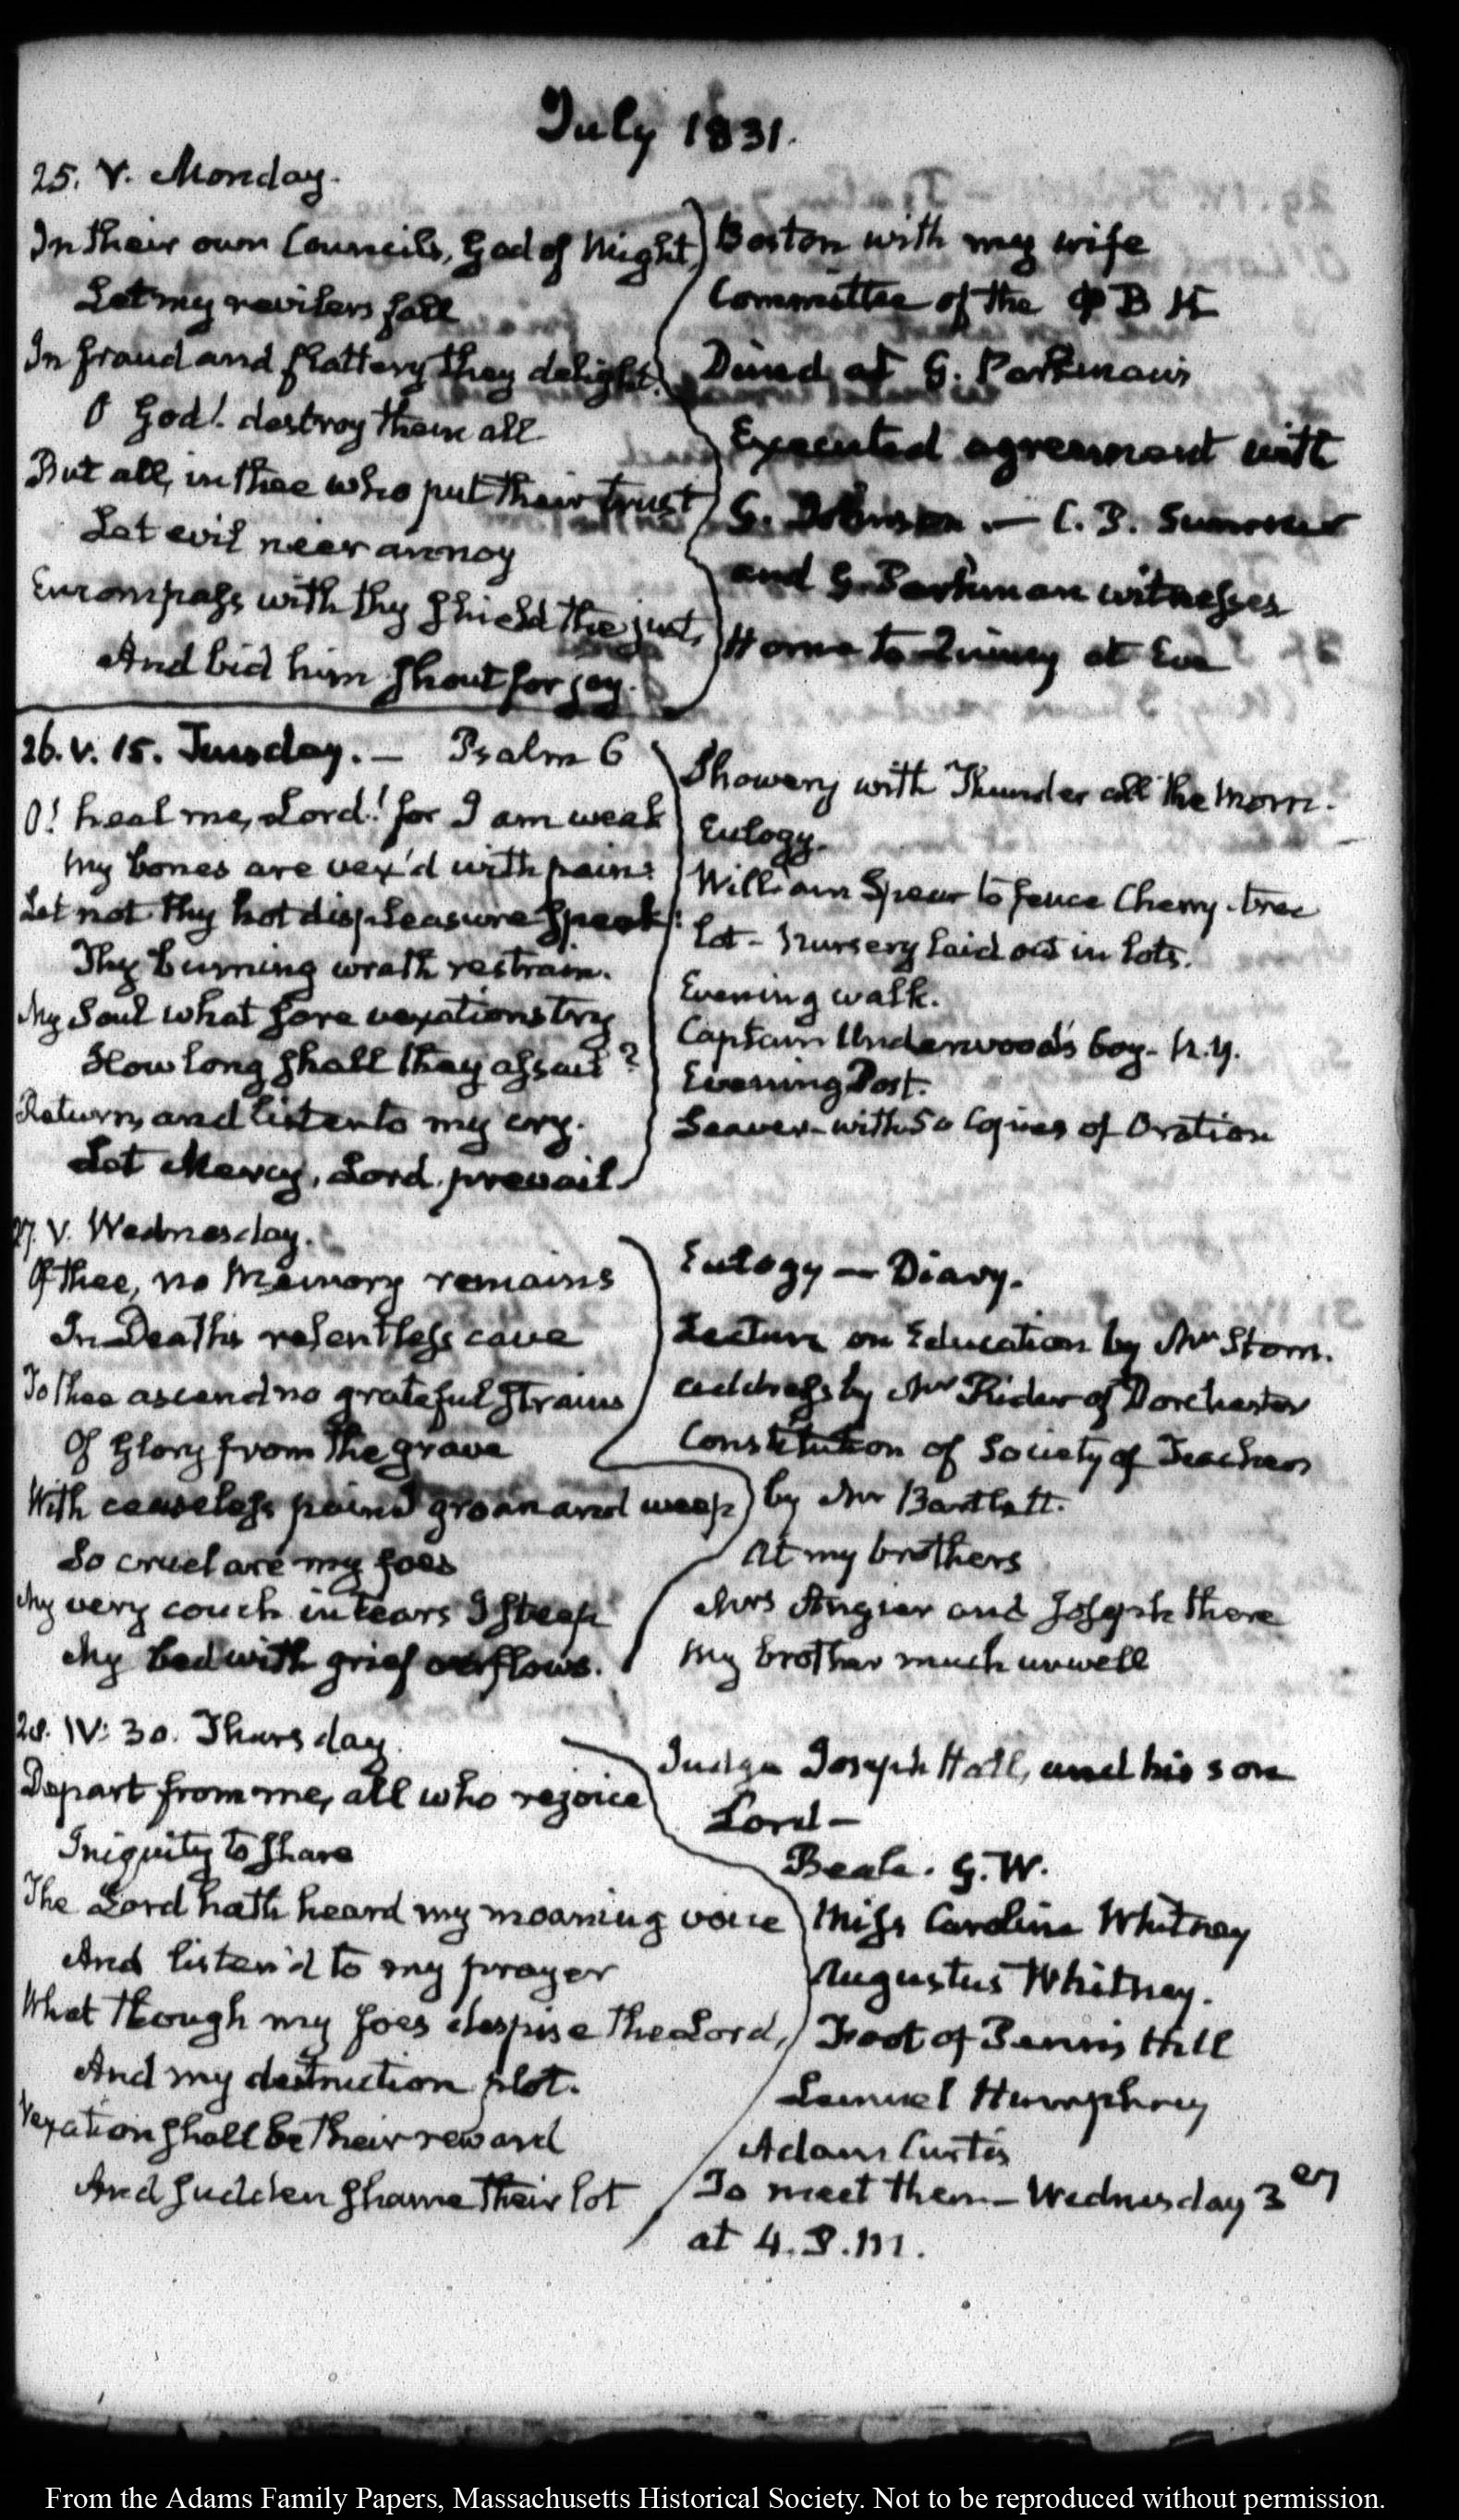 July 1831.
25. V. Monday.
In their own Councils, God of Might,
Let my revilers fall
In fraud and flattery they delight.
O God! destroy them all
But all, in thee who put their trust
Let evil neer annoy
Encompass with thy shield the just,
And bid him shout for joy.
Boston with my wife
Committee of the Φ B K
Dined at G. Parkman's
Executed agreement with
G. Johnson. — C. P. Sumner
and G. Parkman witnesses
Home to Quincy at Eve
26. V. 15. Tuesday. — Psalm 6
O! heal me, Lord! for I am weak
My bones are vex'd with pain:
Let not thy hot displeasure speak:
Thy burning wrath restrain.
My Soul what sore vexations try
How long shall they assail?
Return, and listen to my cry.
Let Mercy, Lord, prevail
Showery with Thunder all the morn.
Eulogy.
William Spear to fence Cherry-tree
lot - Nursery laid out in lots.
Evening walk.
Captain Underwood's boy - N.Y.
Evening Post.
Seaver - with 50 Copies of Oration
27. V. Wednesday.
Of thee, no Memory remains
In Death's relentless cave
To thee ascend no grateful strains
Of Glory from the grave
With ceaseless pain I groan and weep
So cruel are my foes
My very couch in tears I steep
My bed with grief oerflows.
Eulogy — Diary.
Lecture on Education by Mr Storn.
address by Mr Rider of Dorchester
Constitution of Society of Teachers
by Mr Bartlett.
At my brothers
Mrs Angier and Joseph there
My brother much unwell
28. IV: 30. Thursday.
Depart from me, all who rejoice
Iniquity to share
The Lord hath heard my moaning voice
And listen'd to my prayer
What though my foes despise the Lord,
And my destruction plot.
Vexation shall be their reward
And sudden shame their lot
Judge Joseph Hall, and his son
Lord —
Beale. G. W.
Miss Caroline Whitney
Augustus Whitney.
Foot of Penns Hill
Lemuel Humphrey
Adam Curtis
To meet them — Wednesday 3
at 4. P.M.
From the Adams Family Papers, Massachusetts Historical Society. Not to be reproduced without permission.